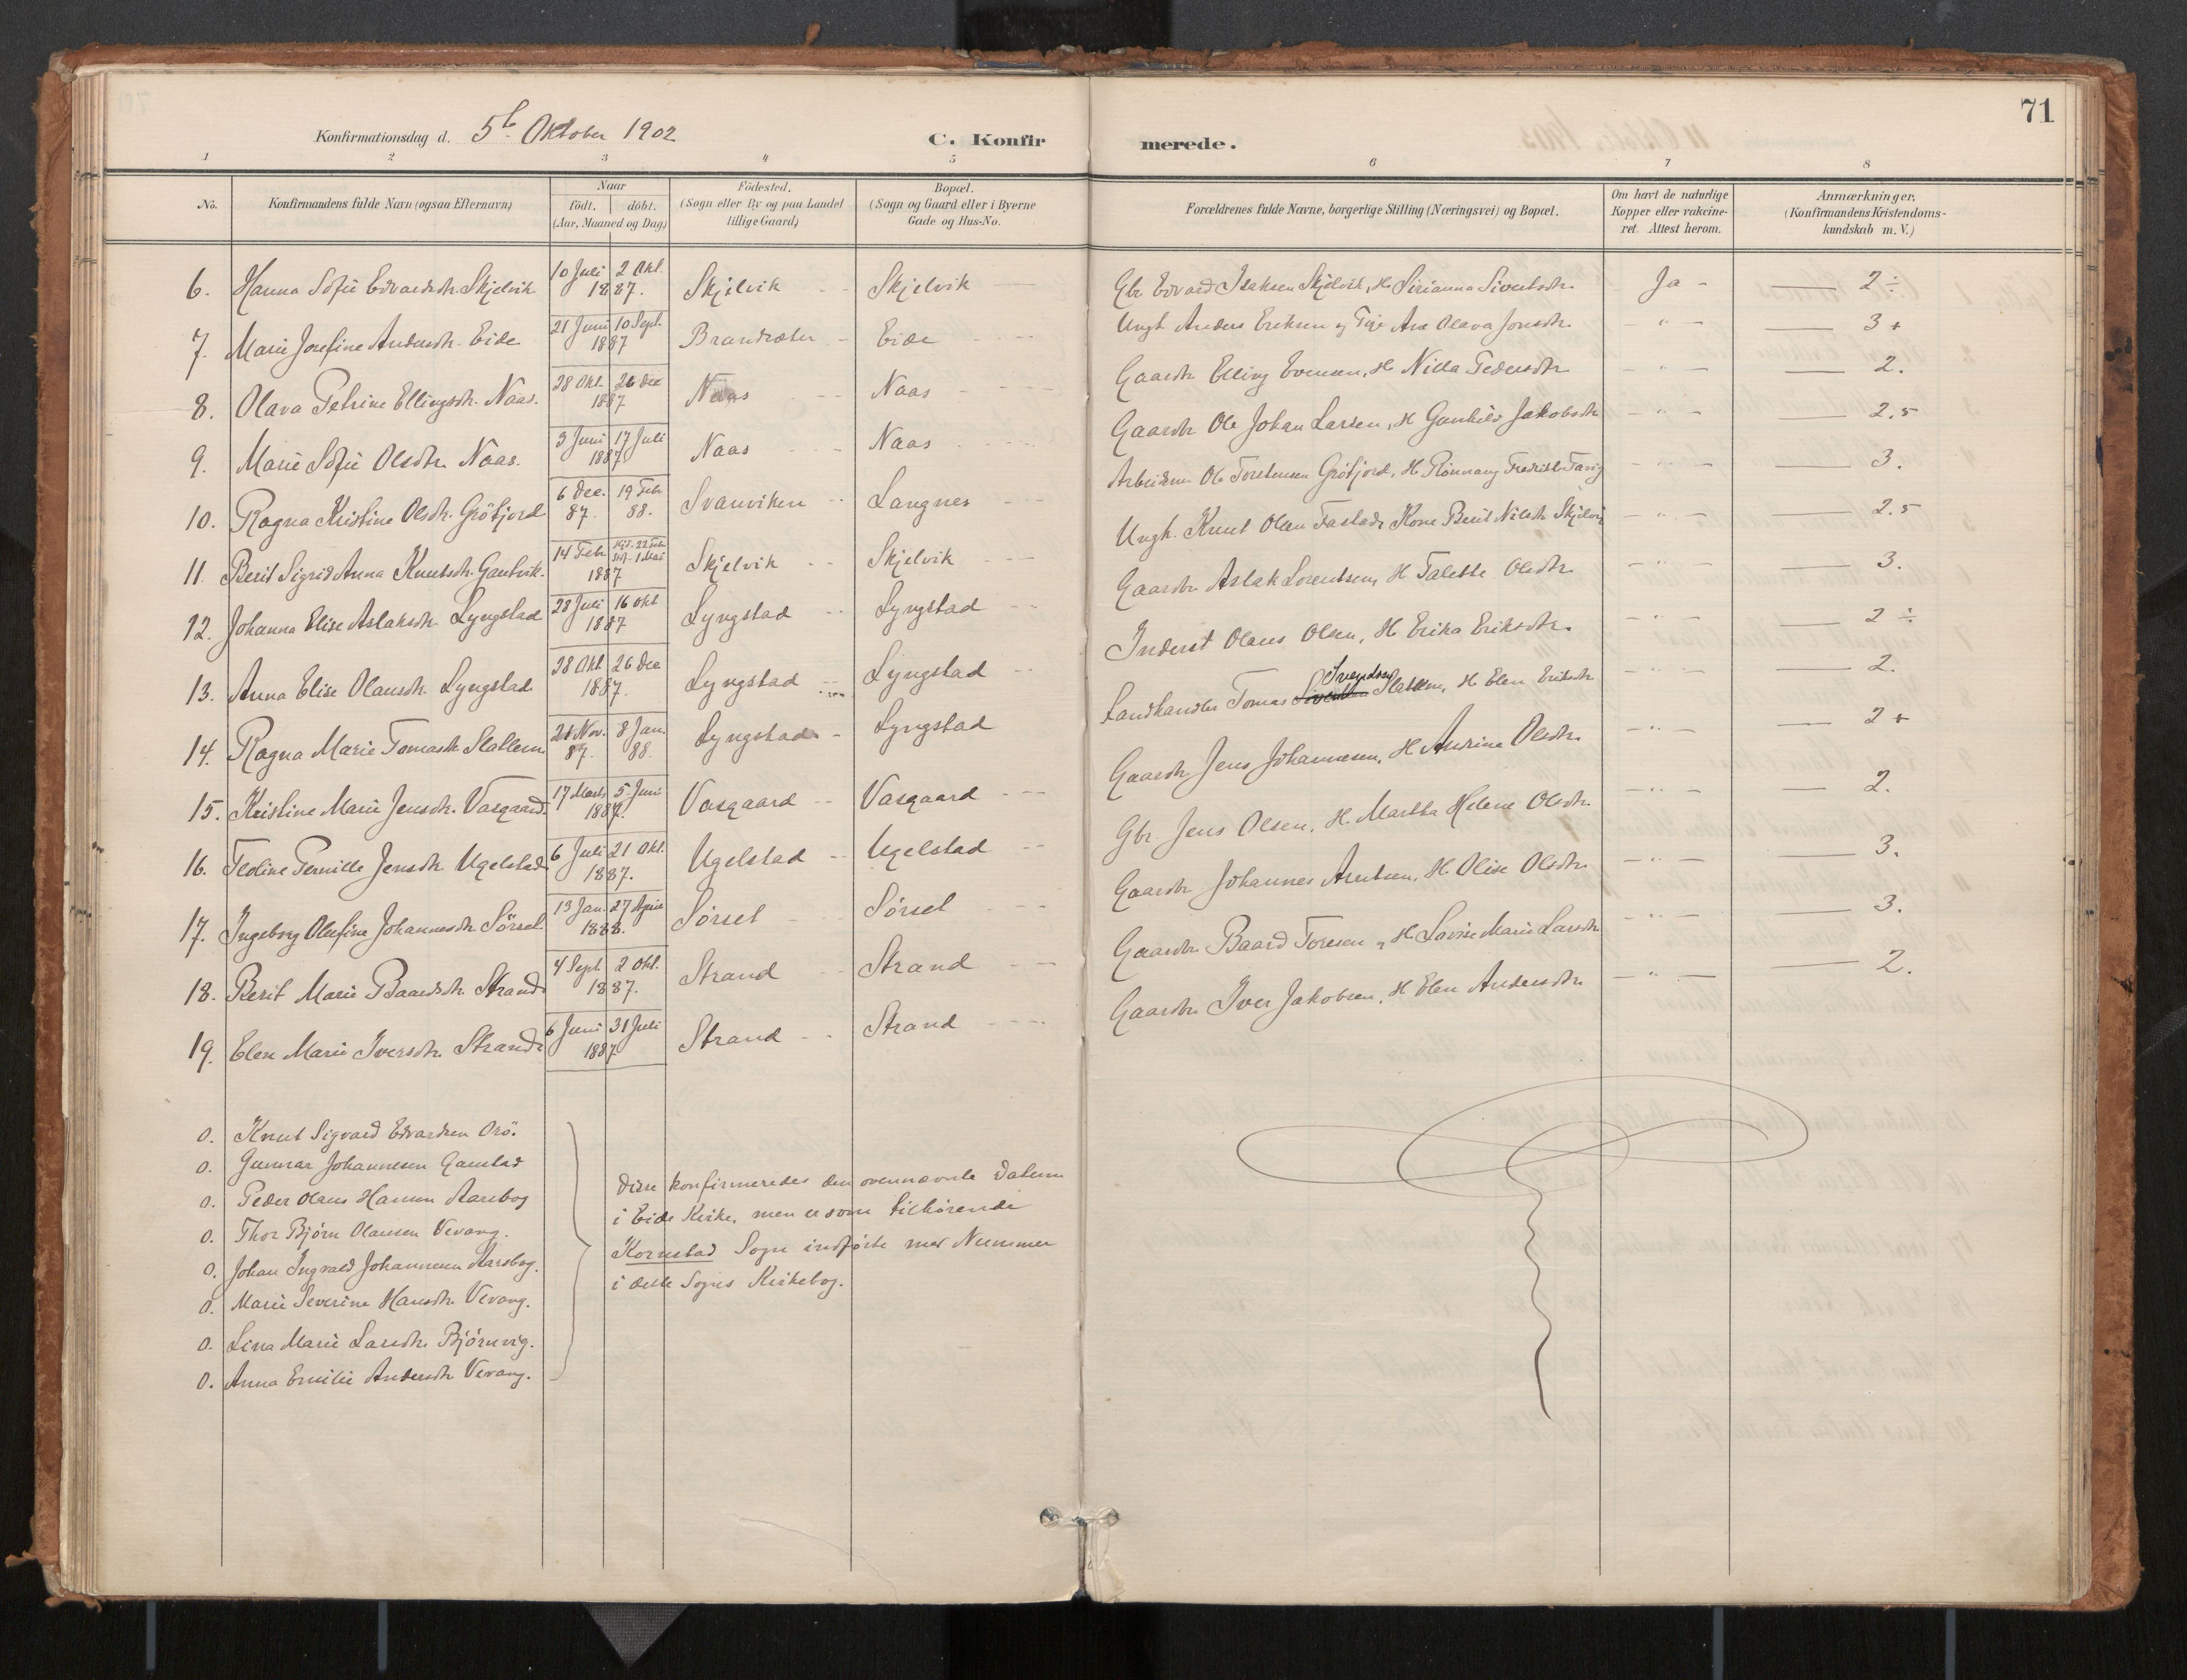 71
Konfirmationsdag d. 5t. Oktober 1902
C. Konfirmerede.
1 2 3 4 5 6 7 8
No. | Konfirmandens fulde Navn (ogsaa Efternavn) | Naar födt. | döbt. (Aar, Maaned og Dag) | Födested. (Sogn eller By og paa Landet tillige Gaard) | Bopæl. (Sogn og Gaard eller i Byerne Gade og Hus-No. | Forældrenes fulde Navne, borgerlige Stilling (Næringsvei) og Bopæl. | Om havt de naturlige Kopper eller vakcineret. Attest herom. | Anmærkninger. (Konfirmandens Kristendomskundskab m. V.)
6. Hanna Sofie Edvardsdtr. Skjelvik | 10 Juli | 2 Okt. 1887. | Skjelvik | Skjelvik | Gbr. Edvard Isaksen Skjelvik, H. Sirianna Sivertsdtr. | Ja - | 2 ÷
7. Marie Josefine Andersdtr. Eide | 21 Juni | 10 Sept. 1887 | Brandsæter | Eide | Ungk. Anders Eriksen og Pige Ane Olava Jonsdtr. | - " - | 3 +
8. Olava Petrine Ellingsdtr. Naas. | 28 Okt. | 26 Dec 1887 | Naas | Naas | Gaardbr. Elling Evensen, H. Nilla Pedersdtr | - " - | 2.
9. Marie Sofie Olsdtr. Naas. | 3 Juni | 17 Juli 1887 | Naas | Naas | Gaardbr. Ole Johan Larsen, H. Gunhild Jakobsdtr | - " - | 2,5
10. Ragna Kristine Olsdtr. Gröfjord | 6 Dec. 87. | 19 Febr 88. | Svanviken | Langnes | Arbeidsm. Ole Torstensen Gröfjord, H. Rönnaug Fredrikke | - " - | 3.
11. Berit Sigrid Anna Knutsdtr. Gautvik. | 14 Febr. | 1 Mai 1887 | Skjelvik | Skjelvik | Ungk. Knut Olsen Kone Berit Nilsdtr. Skjelvig | - " - | 2.5
12. Johanna Elise Aslaksdtr. Lyngstad | 28 Juli | 16 Okt 1887 | Lyngstad | Lyngstad | Gaardbr. Aslak Lorentsen, H. Talette Olsdtr. | - " - | 3.
13. Anna Elise Olausdtr. Lyngstad. | 28 Okt. | 26 Dec 1887. | Lyngstad | Lyngstad | Inderst Olaus Olsen, H. Erika Eriksdtr. | - " - | 2 ÷
14. Ragna Marie Tomasdtr. Slatlem | 21 Nov. 87. | 8 Jan. 88. | Lyngstad | Lyngstad | Landhandler Tomas Svendsen Slatlem, H. Elen Eriksdtr | - " - | 2.
15. Kristine Marie Jensdtr. Vasgaard. | 17 Marts | 5. Juni 1887. | Vasgaard | Vasgaard | Gaardbr. Jens Johannesen, H. Andrine Olsdtr. | - " - | 2 +
16. Teoline Pernille Jensdtr. Ugelstad | 6 Juli | 21 Okt. 1887. | Ugelstad | Ugelstad | Gbr. Jens Olsen, H. Martha Helene Olsdtr. | - " - | 2.
17. Ingeborg Olufine Johannesdtr. Sörset. | 13 Jan. | 27 April 1888. | Sörset | Sörset | Gaardbr. Johannes Arntsen, H. Olise Olsdtr. | - " - | 3.
18. Berit Marie Baardsdtr. Strand. | 4 Sept. | 2 Okt. 1887. | Strand | Strand | Gaardbr. Baard Toresen, H. Lovise Marie Larsdtr | - " - | 3.
19. Elen Marie Iversdtr. Strand. | 6 Juni | 31 Juli 1887 | Strand | Strand | Gaardbr. Iver Jakobsen, H. Elen Andersdtr. | - " - | 2.
0. Knut Sigvard Edvardsen Orö.
0. Gunnar Johannesen Gaustad
0. Peder Olaus Hansen Aarsbog
0. Thor Bjørn Olausen Vevang.
0. Johan Ingvald Johannesen Aarsbog.
0. Marie Severine Hansdtr. Vevang.
0. Lina Marie Larsdtr. Bjørnvig.
0. Anna Emilie Andersdtr Vevang.
Disse konfirmeredes den ovennævnte Datum
i Eide Kirke, men er som tilhörende
Kornstad Sogn indførte med Nummer
i dette Sogns Kirkebog.